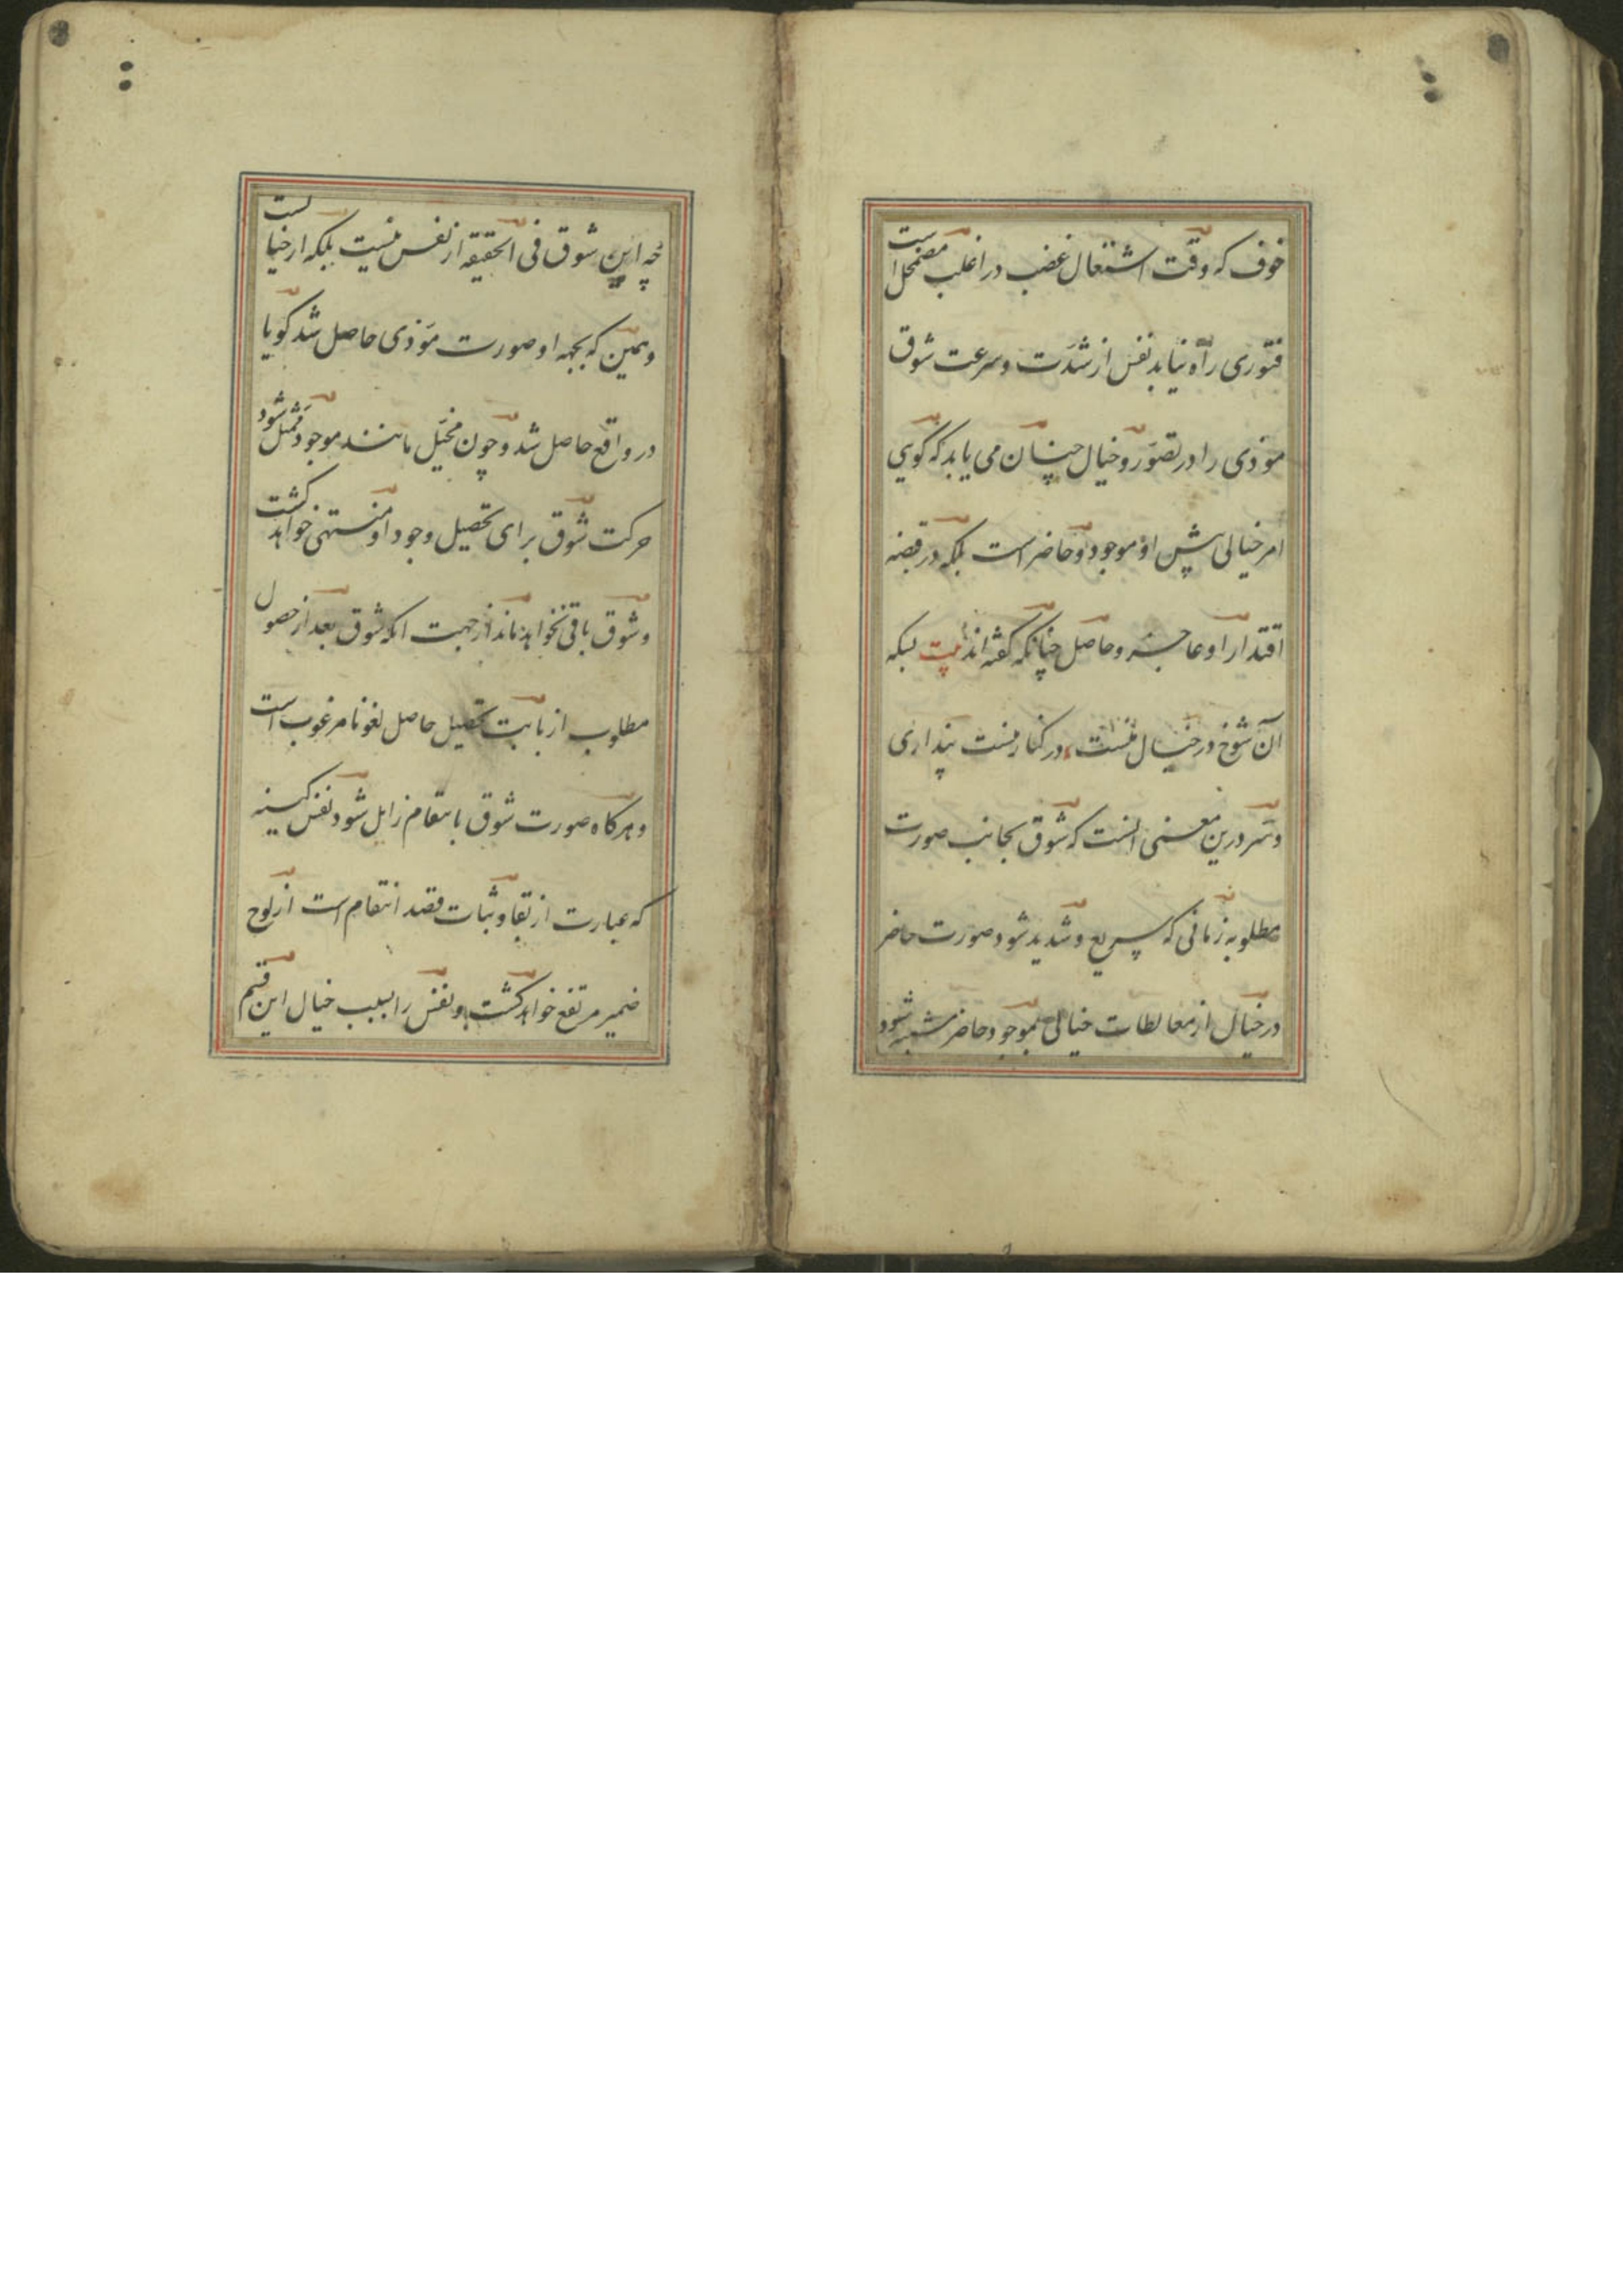 خوف که وقت اشتعال غضب در اغلب مضمحل است
فتوری راه نیابد نفس از شدت و سرعت شوق
موذی را در تصور و خیال چنان می یابد که گویی
امر خیالی پیش او موجود و حاضر است بلکه در قبضه
اقتدار او عاجز و حاصل چنانکه گفته اند بیت بسکه
آن شوخ در خیال منست در کنار منست پنداری
و سر درین معنی انست که شوق بجانب صورت
مطلوبه زمانی که سریع و شدید شود صورت حاضر
در خیال از مغالطات خیالی بموجود حاضر مشتبه شود
چه این شوق فی الحقیقه از نفس نیست بلکه از خیالست
و همین که بجهه او صورت موذی حاصل شد گویا
در واقع حاصل شد و چون مخیل مانند موجود متمثل شود
حرکت شوق برای تحصیل وجود او منتهی خواهد کشت
و شوق باقی نخواهد ماند از جهت انکه شوق بعد از حصول
مطلوب از بابت تحصیل حاصل لغو نامرغوب است
و هرکاه صورت شوق بانتقام زایل شود نفس کینه
که عبارت از بقا و ثبات قصد انتقام است از لوح
ضمیر مرتفع خواهد کشت و نفس را بسبب خیال این قسم